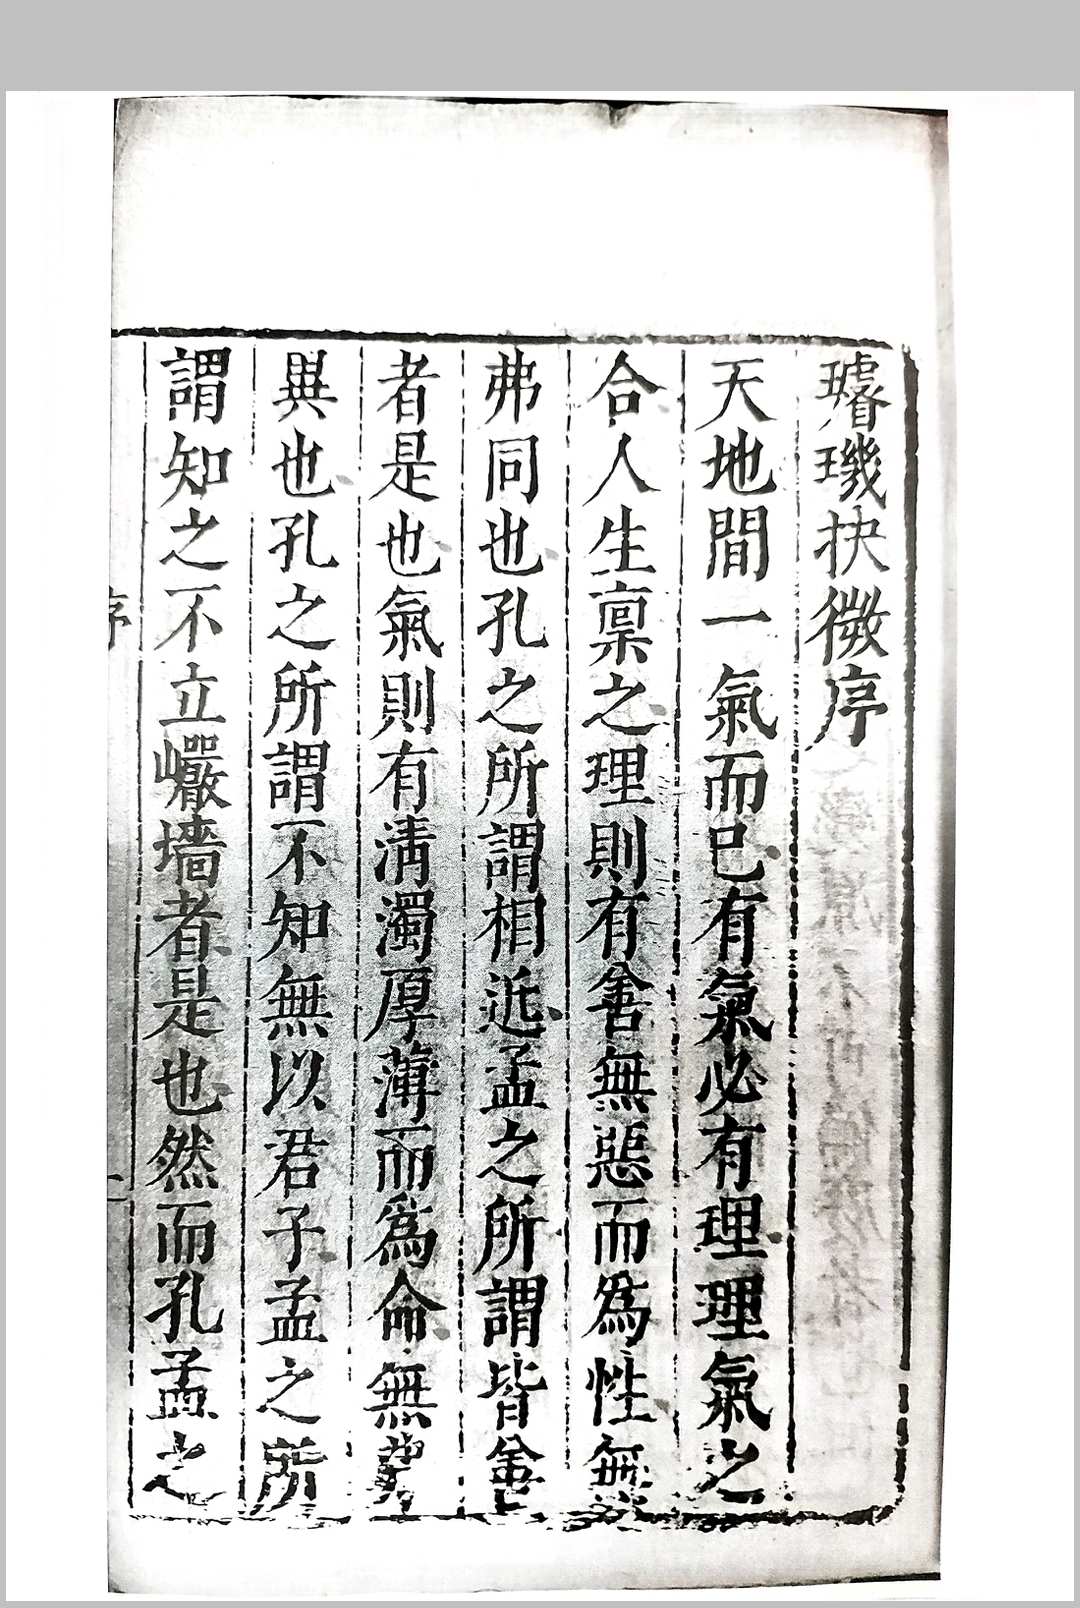 璿璣抉微序
天地間一氣而已有氣必有理理氣之
合人生禀之理則有善無惡而為性無
弗同也孔之所謂相近孟之所謂皆善
者是也氣則有清濁厚薄而為命無萬
異也孔之所謂不知無以君子孟之所
謂知之不立巖墻者是也然而孔孟之
序